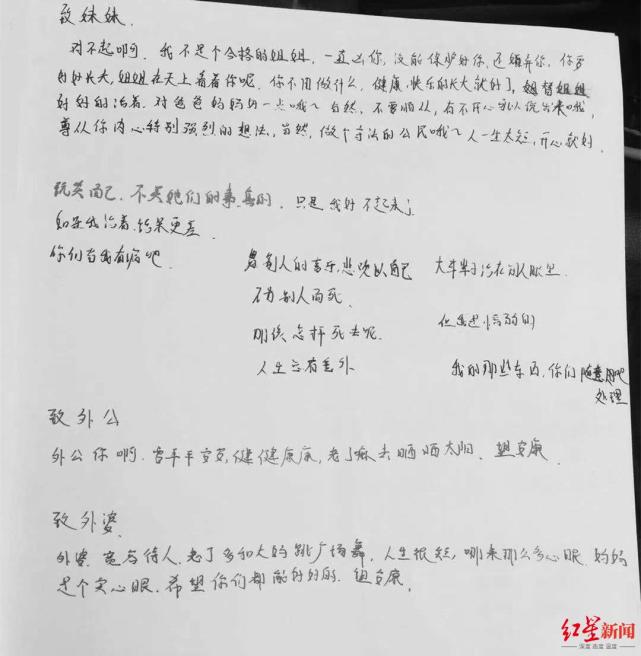 致妹妹.
对不起啊. 我不是个合格的姐姐, 一直凶你, 没能保护好你, 还嫌弃你, 你要
好好长大, 姐姐在天上看着你呢. 你不用做什么, 健康、快乐的长大就好了, 姐替姐姐
好好的活着. 对爸爸妈妈好一点哦～ 当然, 不要顺从, 有不开心就说出来哦,
尊从你内心特别强烈的想法, 当然, 做个守法的公民哦～ 人一生太短, 开心就好.
玩笑而已. 不关她们的事, 真的, 只是我好不起来了
如果我活着, 结果更差
你们当我有病吧
为别人的喜乐, 悲欢以自己 大半辈子活在别人眼里.
不为别人而死. 但愿是怯弱的
明侯怎样死去呢.
人生总有意外 我的那些东西, 你们随意用吧
处理
致外公
外公你啊, 要平平安安, 健健康康, 老了麻去晒晒太阳、望安康
致外婆.
外婆, 宽与待人, 老了多和大妈跳广场舞, 人生很短, 哪来那么多心眼, 妈妈
是个实心眼. 希望你们都能好好的. 望安康.
红星新闻
深度 态度 温度